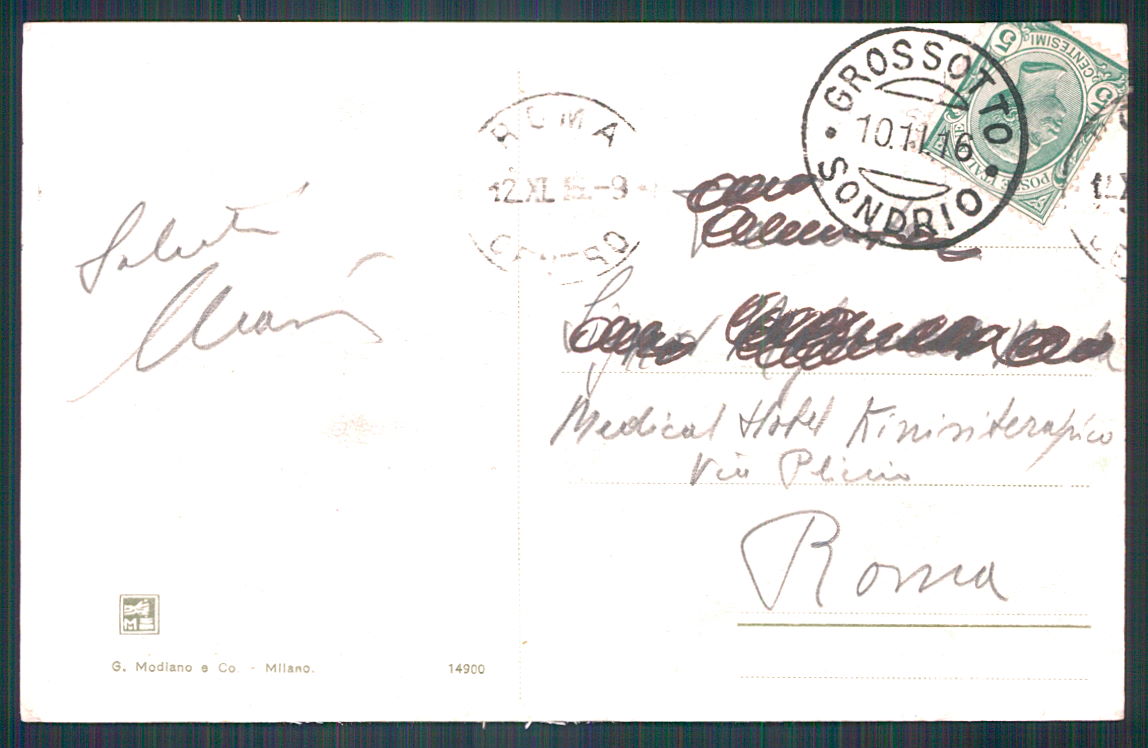 5 CENTESIMI 5
POSTE ITALIANE
GROSSOTTO
10.11.16
SONDRIO
ROMA
12.XI.16-9
CENTRO
12.X
CE
Saluti
Medical Hotel Kinisiterapico
Via Plinio
Roma
ME
G. Modiano e Co. - Milano.
14900